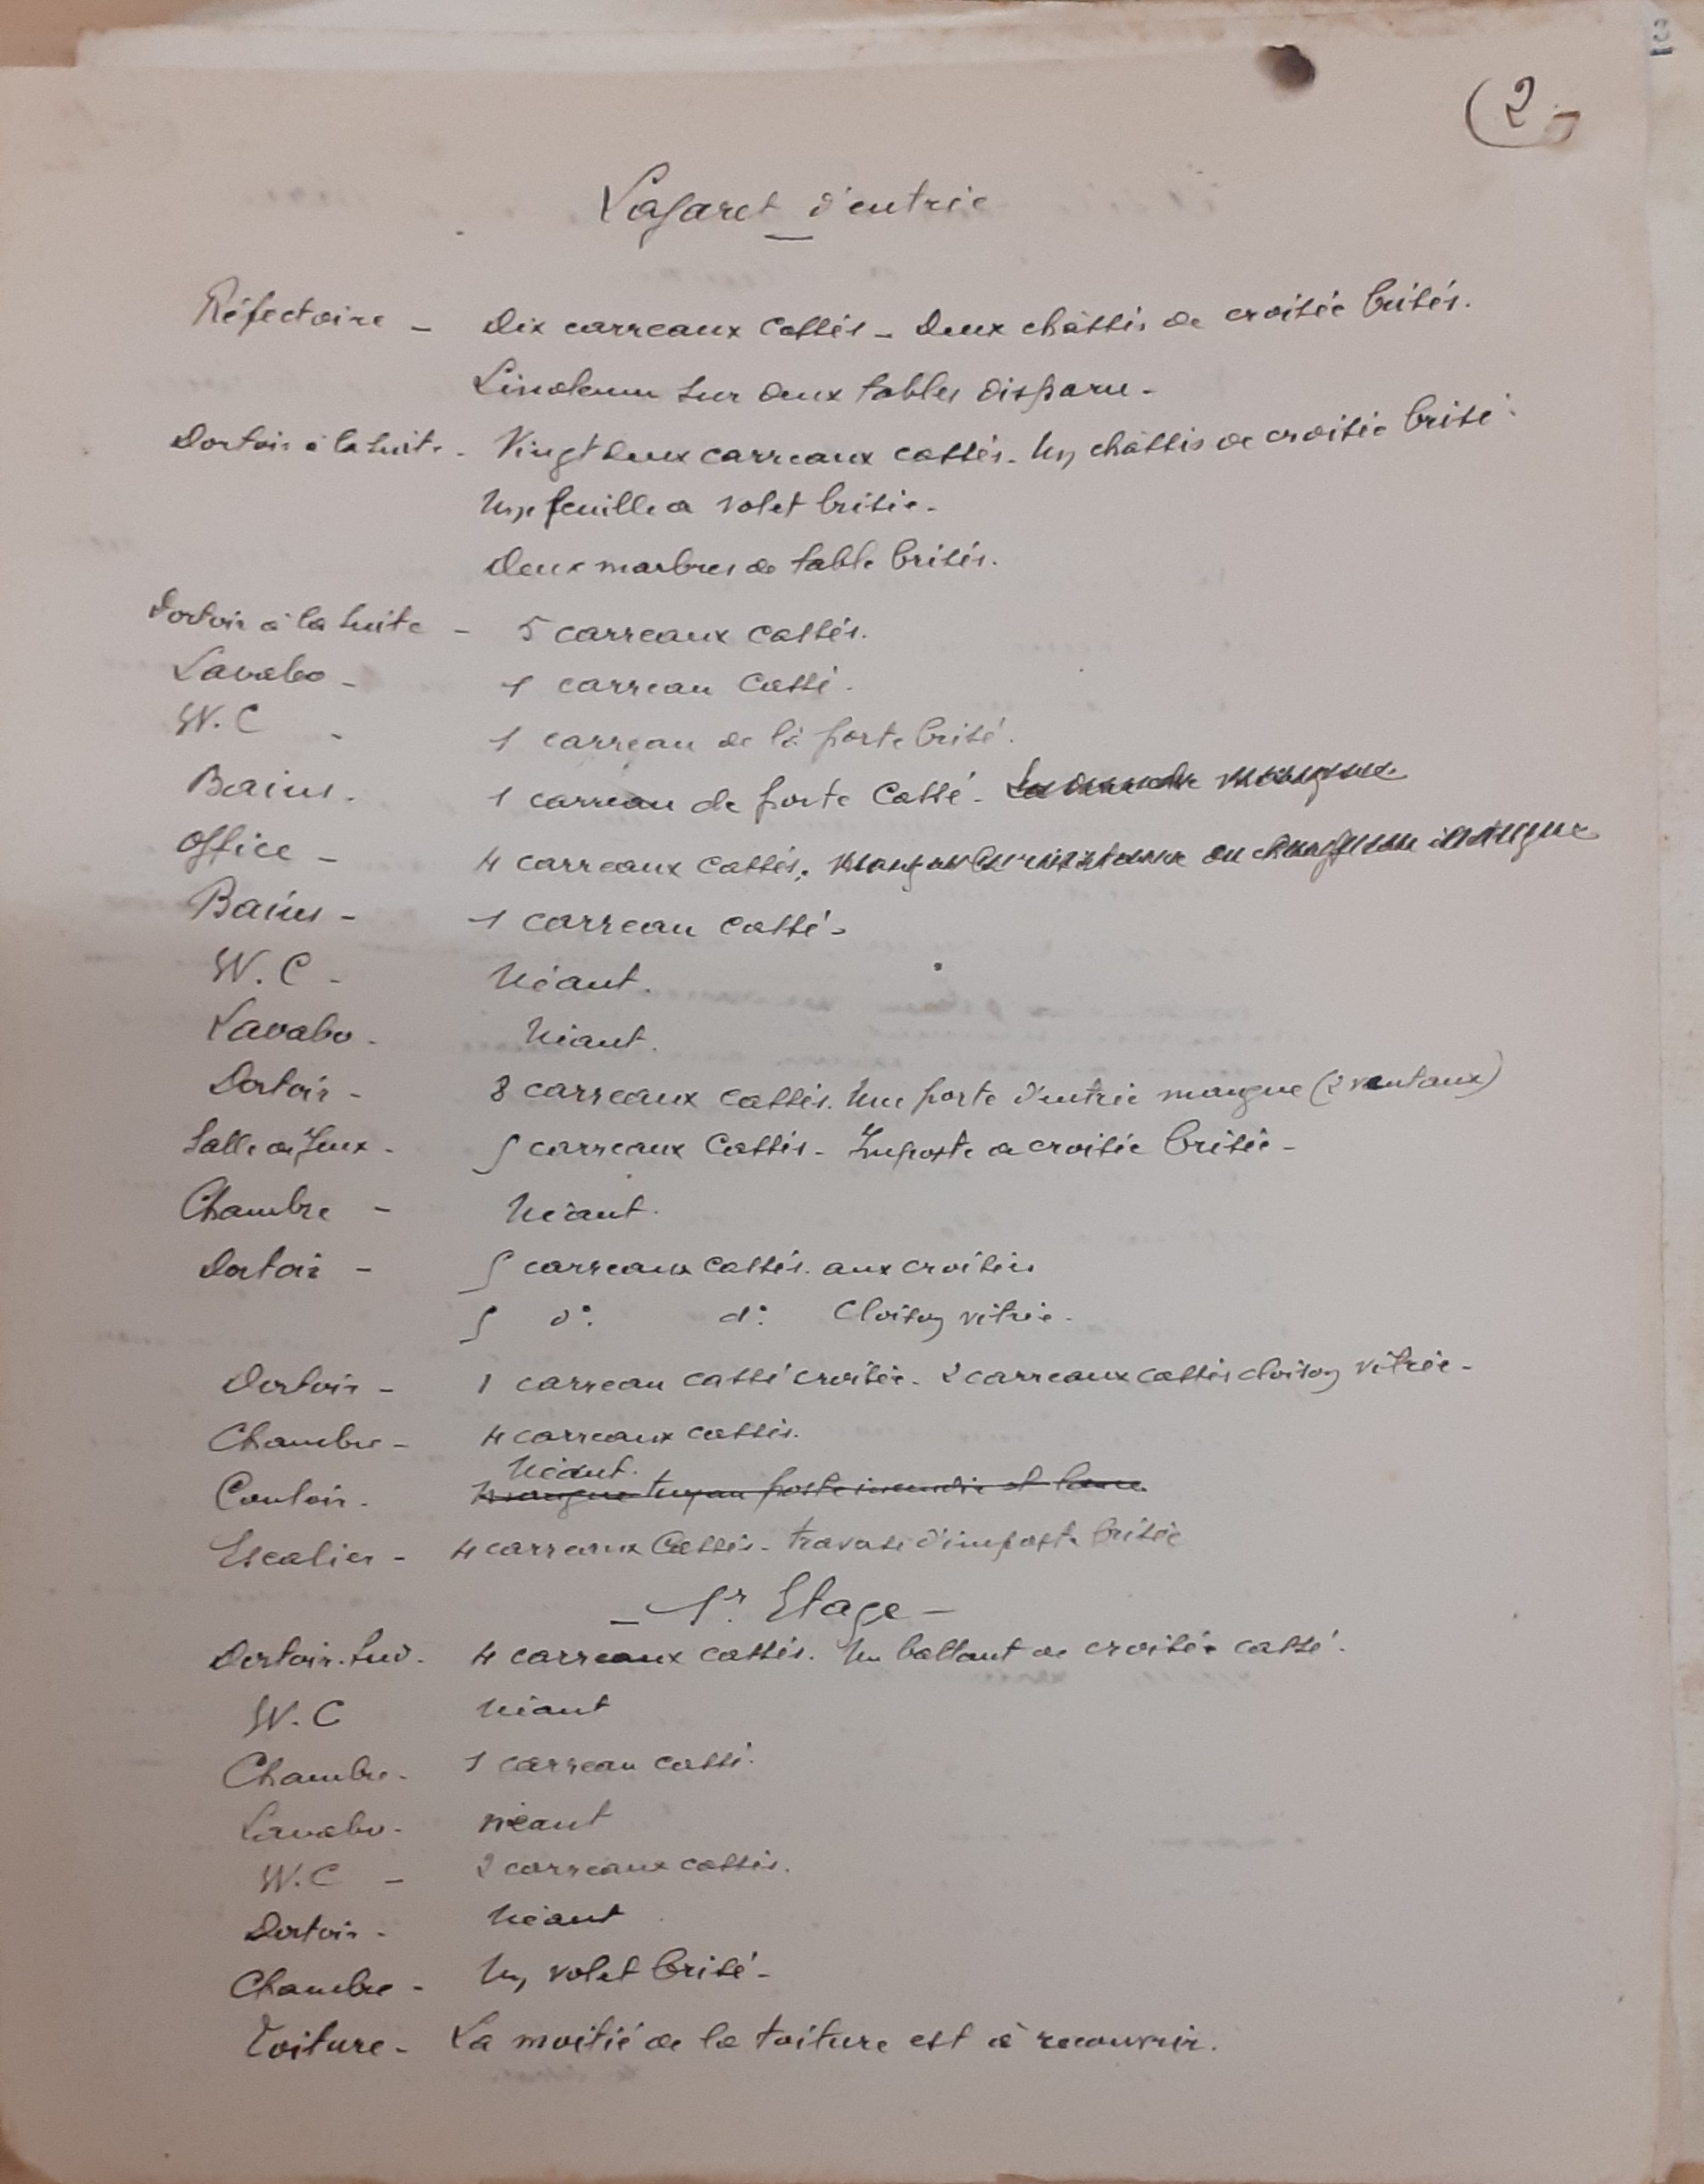 (2)
Lazaret d'entrée
Réfectoire - Dix carreaux cassés - Deux châssis de croisée brisés.
Linoleum sur deux tables disparu -
Dortoir à la suite - Vingt deux carreaux cassés - Un châssis de croisée brisé.
Une feuille de volet brisée -
Deux marbres de table brisés.
Dortoir à la suite - 5 carreaux cassés.
Lavabo - 1 carreau cassé.
W.C - 1 carreau de la porte brisé.
Bains. 1 carreau de porte cassé -
Office - 4 carreaux cassés.
Bains - 1 carreau cassé -
W.C - Néant.
Lavabo. Néant.
Dortoir - 8 carreaux cassés. Une porte d'entrée manque (2 vantaux)
Salle de Jeux - 5 carreaux cassés - Imposte de croisée brisée -
Chambre - Néant.
Dortoir - 5 carreaux cassés. aux croisées
5 d°. d°. Cloison vitrée -
Dortoir - 1 carreau cassé croisée - 2 carreaux cassés cloison vitrée -
Chambre - 4 carreaux cassés.
Néant.
Couloir - manque tuyau poste incendie et lance.
Escalier - 4 carreaux cassés - traverse d'imposte brisée
- 1r. Etage -
Dortoir Sud - 4 carreaux cassés. Un battant de croisée cassé.
W.C Néant
Chambre - 1 carreau cassé.
Lavabo - néant
W.C - 2 carreaux cassés.
Dortoir - Néant
Chambre - Un volet brisé -
Toiture - La moitié de la toiture est à recouvrir.